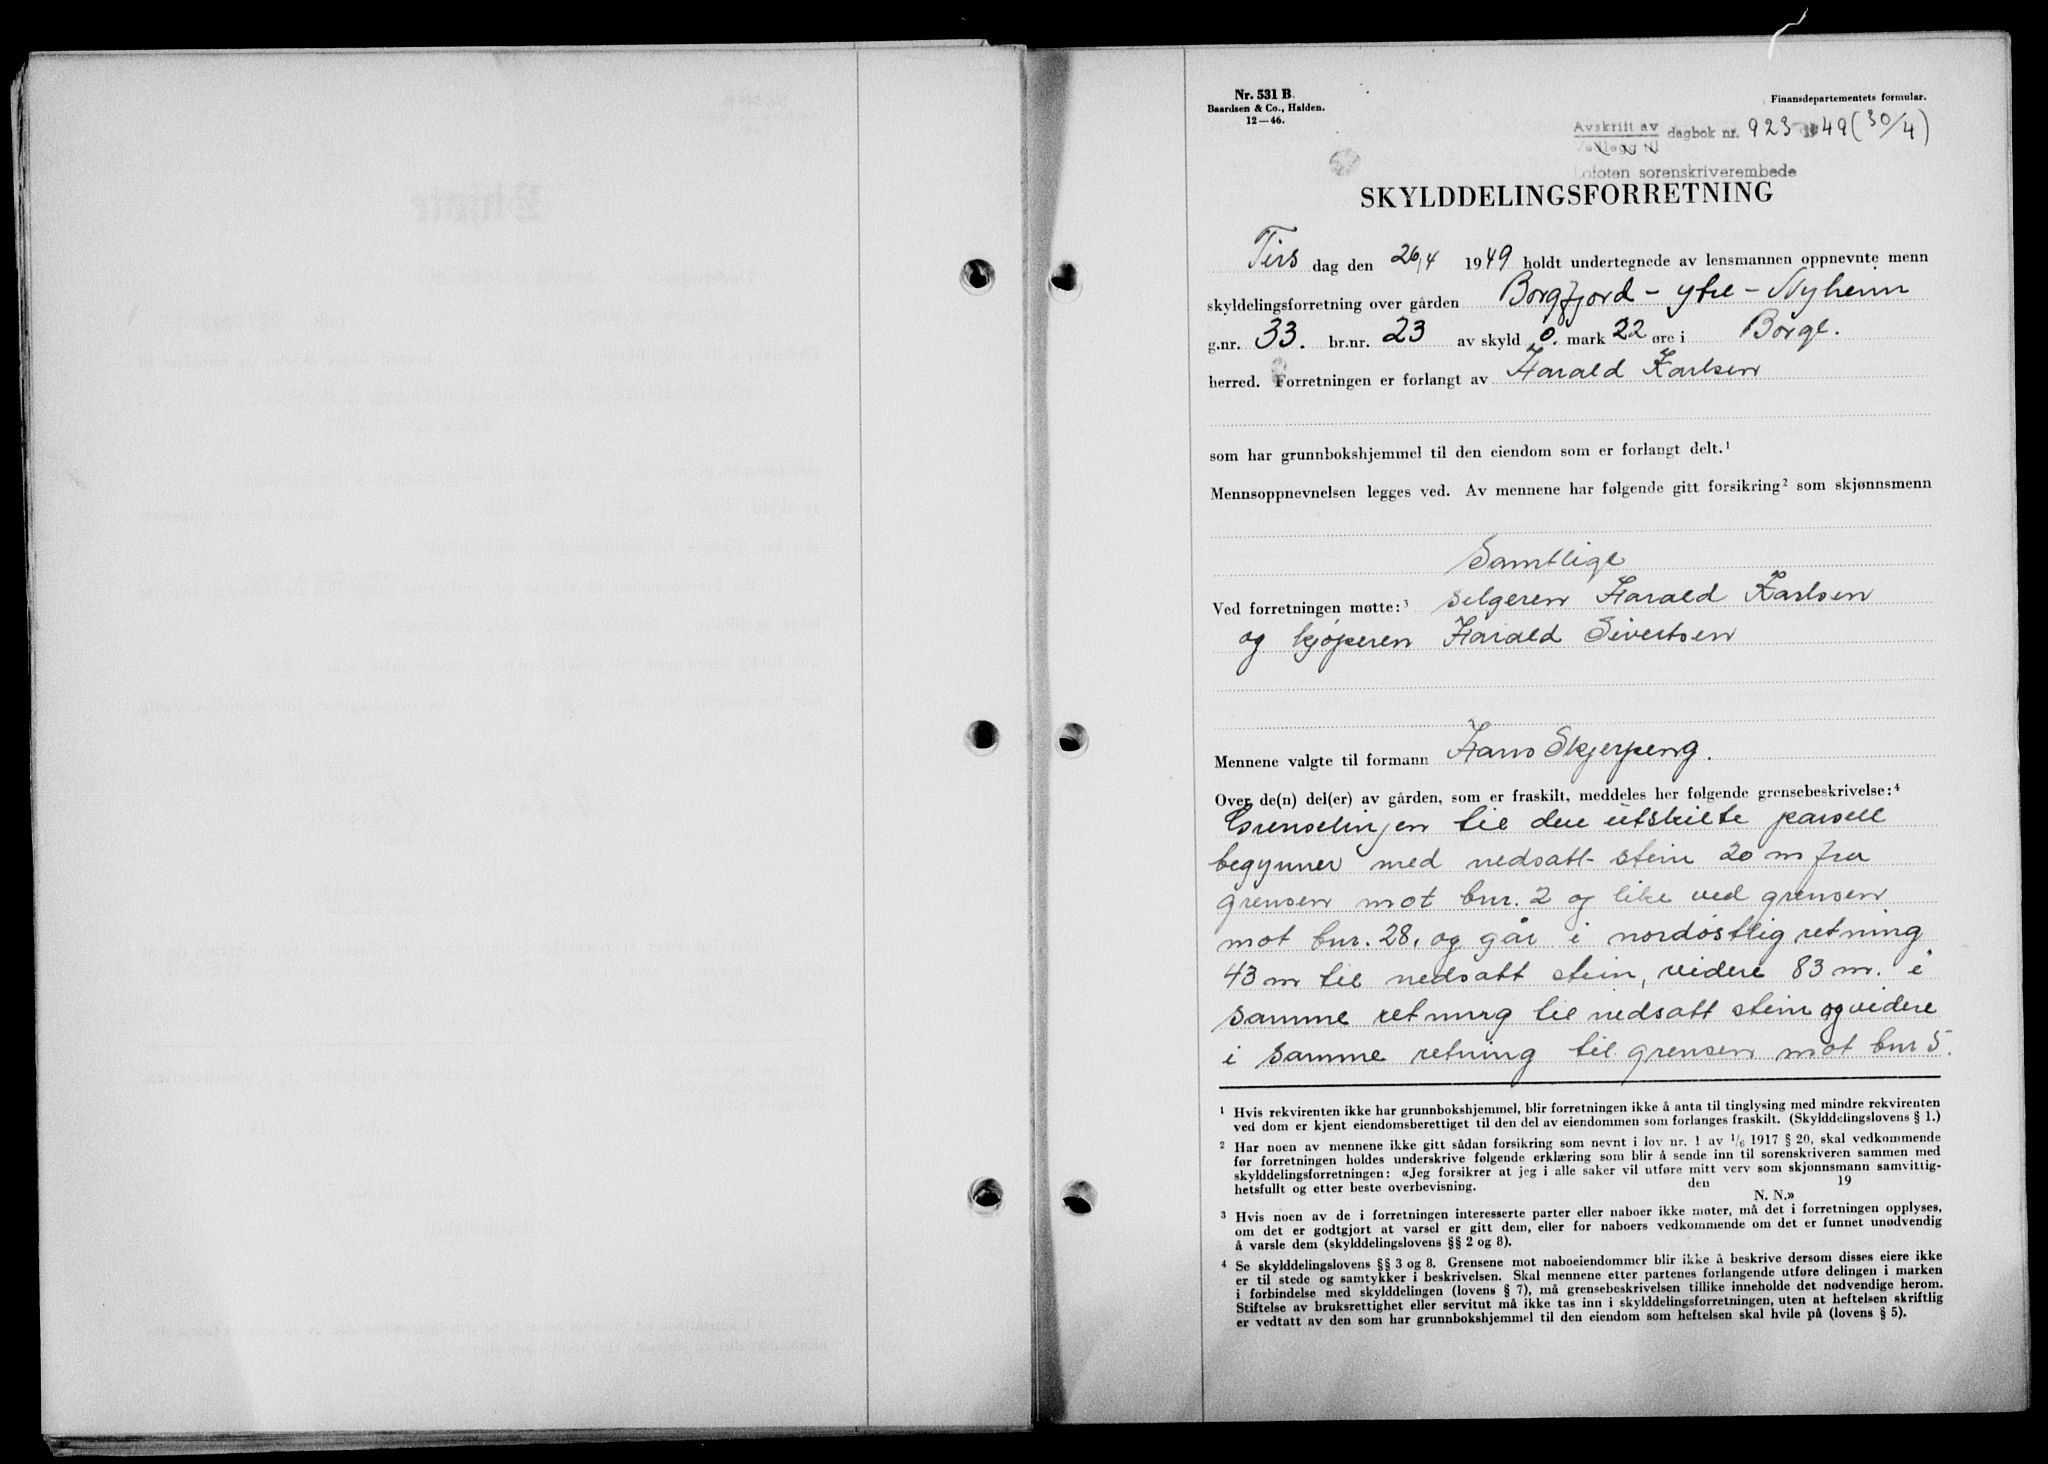 Nr. 531 B.
Baardsen & Co., Halden.
12—46.
Finansdepartementets formular.
Avskrift av
dagbok nr. 923 1949 (30/4)
Vedlegg til
Lofoten sorenskriverembede
SKYLDDELINGSFORRETNING
Tirs dag den 26/4 1949 holdt undertegnede av lensmannen oppnevnte menn
skyldelingsforretning over gården Borgfjord - ytre - Nyheim
g.nr. 33. br.nr. 23 av skyld 0. mark 22 øre i Borge.
herred. Forretningen er forlangt av Harald Karlsen
som har grunnbokshjemmel til den eiendom som er forlangt delt.¹
Mennsoppnevnelsen legges ved. Av mennene har følgende gitt forsikring² som skjønnsmenn
Samtlige
Ved forretningen møtte:³ selgeren Harald Karlsen
og kjøperen Harald Sivertsen
Mennene valgte til formann Hans Skjerpeng.
Over de(n) del(er) av gården, som er fraskilt, meddeles her følgende grensebeskrivelse:⁴
Grenselinjen til den utskilte parsell
begynner med nedsatt stein 20 m fra
grensen mot bnr. 2 og like ved grensen
mot bnr. 28, og går i nordøstlig retning
43 m til nedsatt stein, videre 83 m. i
samme retning til nedsatt stein og videre
i samme retning til grensen mot bnr 5.
¹ Hvis rekvirenten ikke har grunnbokshjemmel, blir forretningen ikke å anta til tinglysing med mindre rekvirenten
ved dom er kjent eiendomsberettiget til den del av eiendommen som forlanges fraskilt. (Skylddelingslovens § 1.)
² Har noen av mennene ikke gitt sådan forsikring som nevnt i lov nr. 1 av 1/6 1917 § 20, skal vedkommende
før forretningen holdes underskrive følgende erklæring som blir å sende inn til sorenskriveren sammen med
skylddelingsforretningen: «Jeg forsikrer at jeg i alle saker vil utføre mitt verv som skjønnsmann samvittig-
hetsfullt og etter beste overbevisning. den 19
N. N.»
³ Hvis noen av de i forretningen interesserte parter eller naboer ikke møter, må det i forretningen opplyses,
om det er godtgjort at varsel er gitt dem, eller for naboers vedkommende om det er funnet unødvendig
å varsle dem (skylddelingslovens §§ 2 og 8).
⁴ Se skylddelingslovens §§ 3 og 8. Grensene mot naboeiendommer blir ikke å beskrive dersom disses eiere ikke
er til stede og samtykker i beskrivelsen. Skal mennene etter partenes forlangende utføre delingen i marken
i forbindelse med skylddelingen (lovens § 7), må grensebeskrivelsen tillike inneholde det nødvendige herom.
Stiftelse av bruksrettighet eller servitut må ikke tas inn i skylddelingsforretningen, uten at heftelsen skriftlig
er vedtatt av den som har grunnbokshjemmel til den eiendom som heftelsen skal hvile på (lovens § 5).